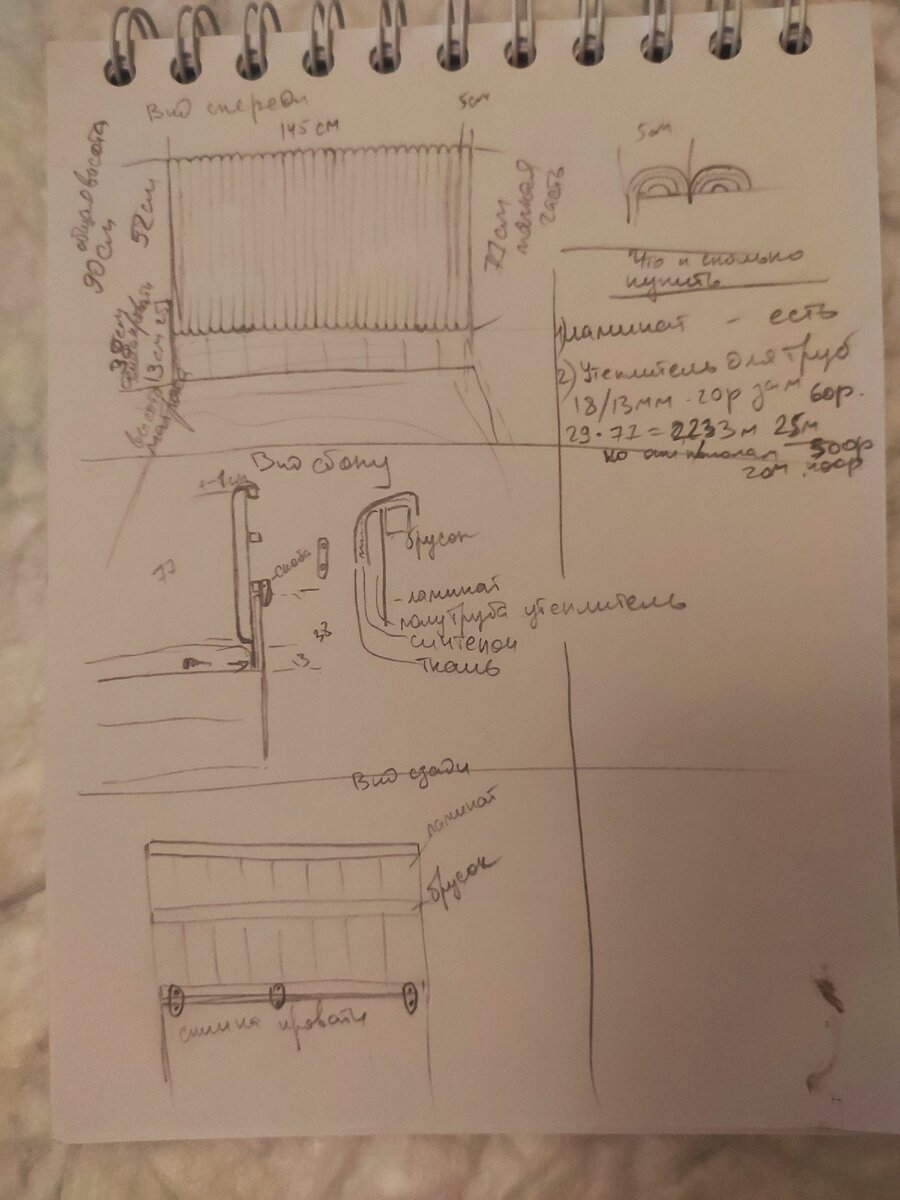 Вид спереди
5см
145 см
общая высота
90 см
52 см
77 см
мягкая
часть
38 см
13 см
25
высота
матраса
5см
Что и сколько
купить
1) ламинат - есть
2) Утеплитель для труб
18/13мм - 20р за м
60р.
29 · 77 = 2233м 25м
500р
20м
Вид сбоку
77
скоба
38
13
брусок
- ламинат
полутруба утеплитель
синтепон
ткань
Вид сзади
ламинат
брусок
спинка кровати